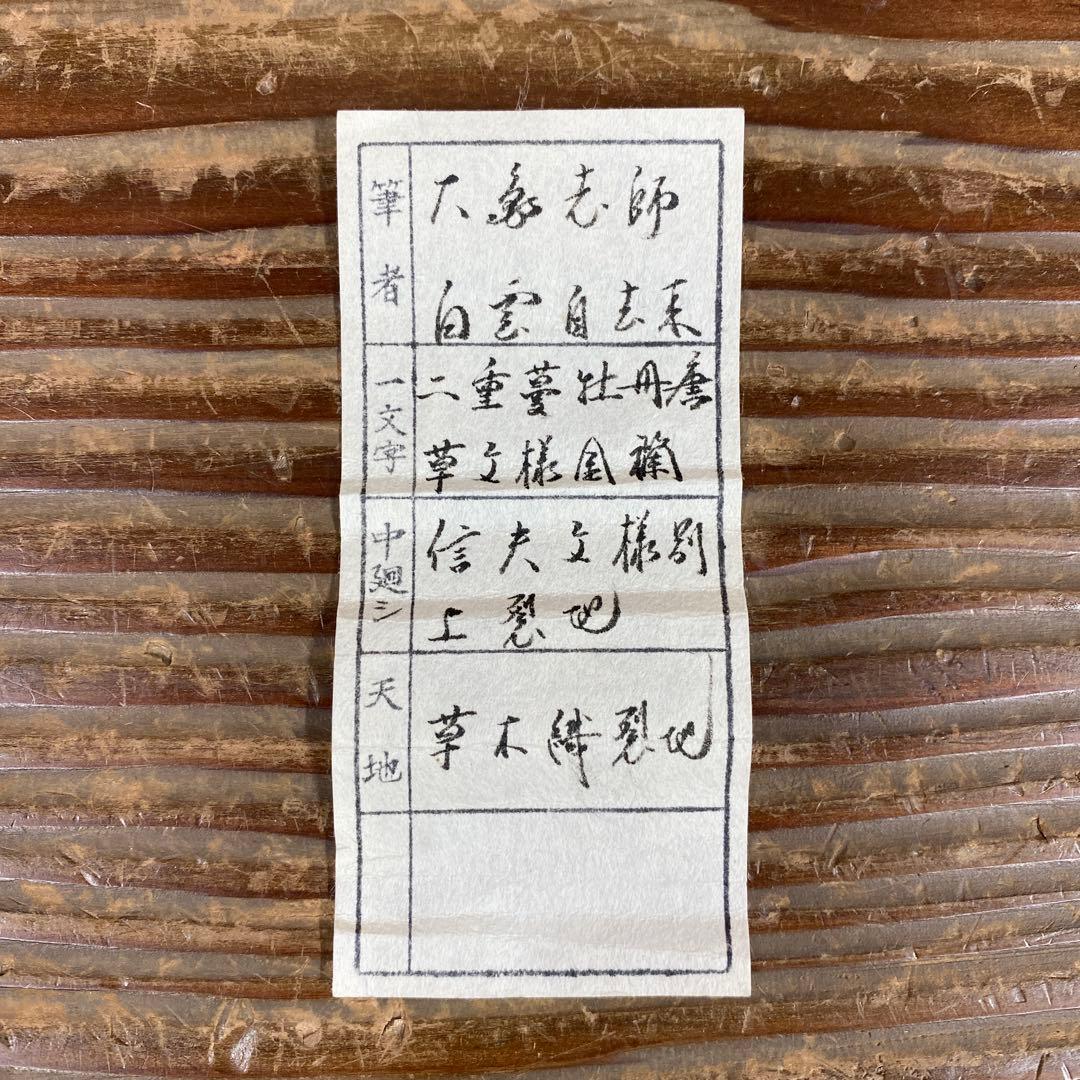 筆者
大象老師
白雲自去来
一文字
二重蔓牡丹唐
草文様金襴
中廻シ
信夫文様別
上裂地
天地
草木織裂地